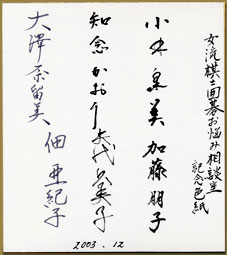 女流棋士囲碁お悩み相談室
記念色紙
小山栄美 加藤朋子
知念かおり 矢代久美子
大澤奈留美 佃 亜紀子
2003.12